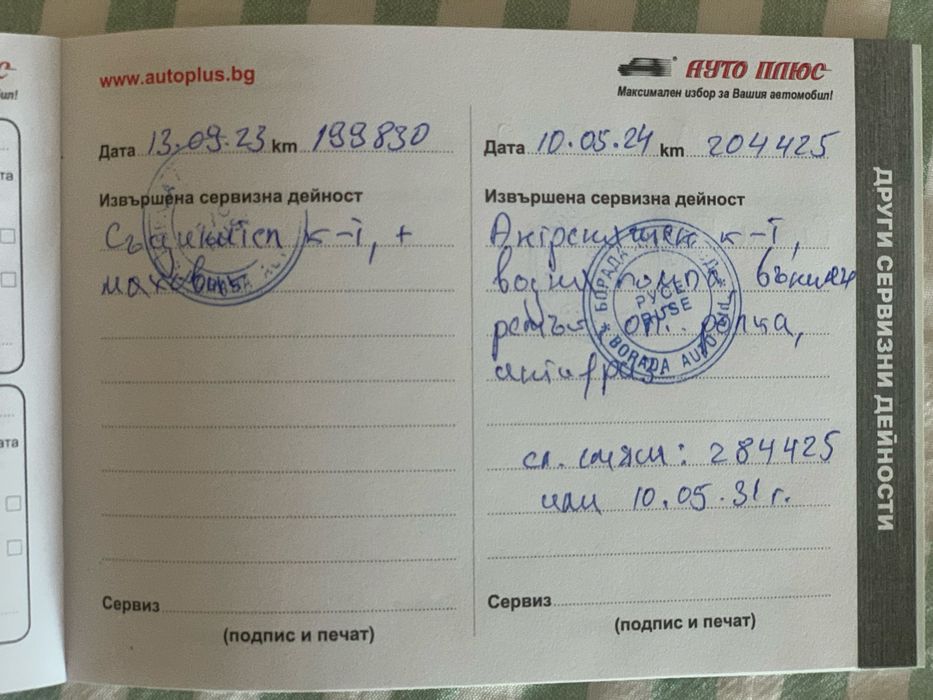 www.autoplus.bg
АУТО ПЛЮС
Максимален избор за Вашия автомобил!
Дата 13.09.23 km 199830
Извършена сервизна дейност
Съединител к-т, +
маховик
Сервиз
(подпис и печат)
Дата 10.05.24 km 204425
Извършена сервизна дейност
Ангренажен к-т,
водна помпа външен
ремък оп. ролка,
антифриз
сл. смяна: 284425
или 10.05.31 г.
БОРАДА
РУСЕ
RUSE
BORADA AUTO
Сервиз
(подпис и печат)
ДРУГИ СЕРВИЗНИ ДЕЙНОСТИ
ил!
та
ата